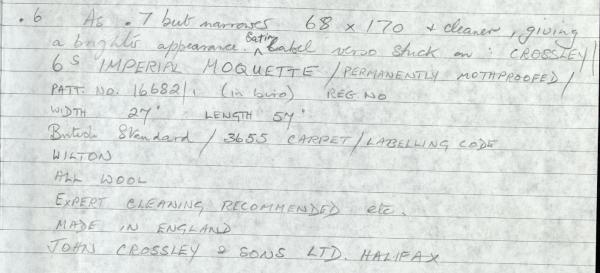 .6 As .7 but narrower 68 x 170 & cleaner, giving
a brighter appearance. Satin Label verso stuck on: CROSSLEY/
6S IMPERIAL MOQUETTE / PERMANENTLY MOTHPROOFED /
PATT. NO. 16682/1 (in biro) REG. NO
WIDTH 27" LENGTH 57"
British Standard / 3655 CARPET / LABELLING CODE
WILTON
ALL WOOL
EXPERT CLEANING RECOMMENDED etc.
MADE IN ENGLAND
JOHN CROSSLEY & SONS LTD. HALIFAX